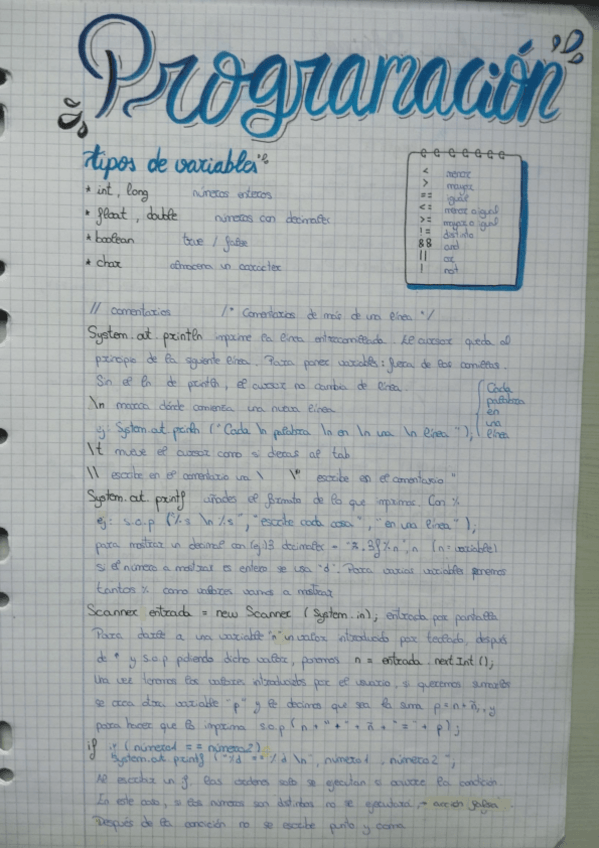 Programación
tipos de variables
* int, long números enteros
* float, double números con decimales
* boolean true / false
* char almacena un caracter
< menor
> mayor
== igual
<= menor o igual
>= mayor o igual
!= distinto
&& and
|| or
| not
// comentarios /* Comentarios de más de una línea */
System.out.println imprime la línea entrecomillada. El cursor queda al
principio de la siguiente línea. Para poner variables: fuera de las comillas.
Sin el ln de println, el cursor no cambia de línea.
\n marca dónde comienza una nueva línea
ej: System.out.println ("Cada \n palabra \n en \n una \n línea");
Cada
palabra
en
una
línea
\t mueve el cursor como si dieras al tab
\\ escribe en el comentario un \ \" escribe en el comentario "
System.out.printf añades el formato de lo que imprimes. Con %
ej: s.o.p ("%s \n %s", "escribe cada cosa", "en una línea");
para mostrar un decimal con (ej) 3 decimales = "%.3f %n", n (n=variable)
si el número a mostrar es entero se usa "d". Para varias variables ponemos
tantos % como valores vamos a mostrar
Scanner entrada = new Scanner (System.in); entrada por pantalla
Para darle a una variable "n" un valor introducido por teclado, después
de * y s.o.p pidiendo dicho valor, ponemos n = entrada.nextInt();
Una vez tenemos los valores introducidos por el usuario, si queremos sumarlos
se crea otra variable "p" y le decimos que sea la suma p=n+ñ, y
para hacer que lo imprima s.o.p (n + "+" + ñ + "=" + p);
if (número1 == número2)
System.out.printf ("%d == %d \n", número1, número2 );
Al escribir un if, las órdenes solo se ejecutan si ocurre la condición.
En este caso, si los números son distintos no se ejecutará,
Después de la condición no se escribe punto y coma